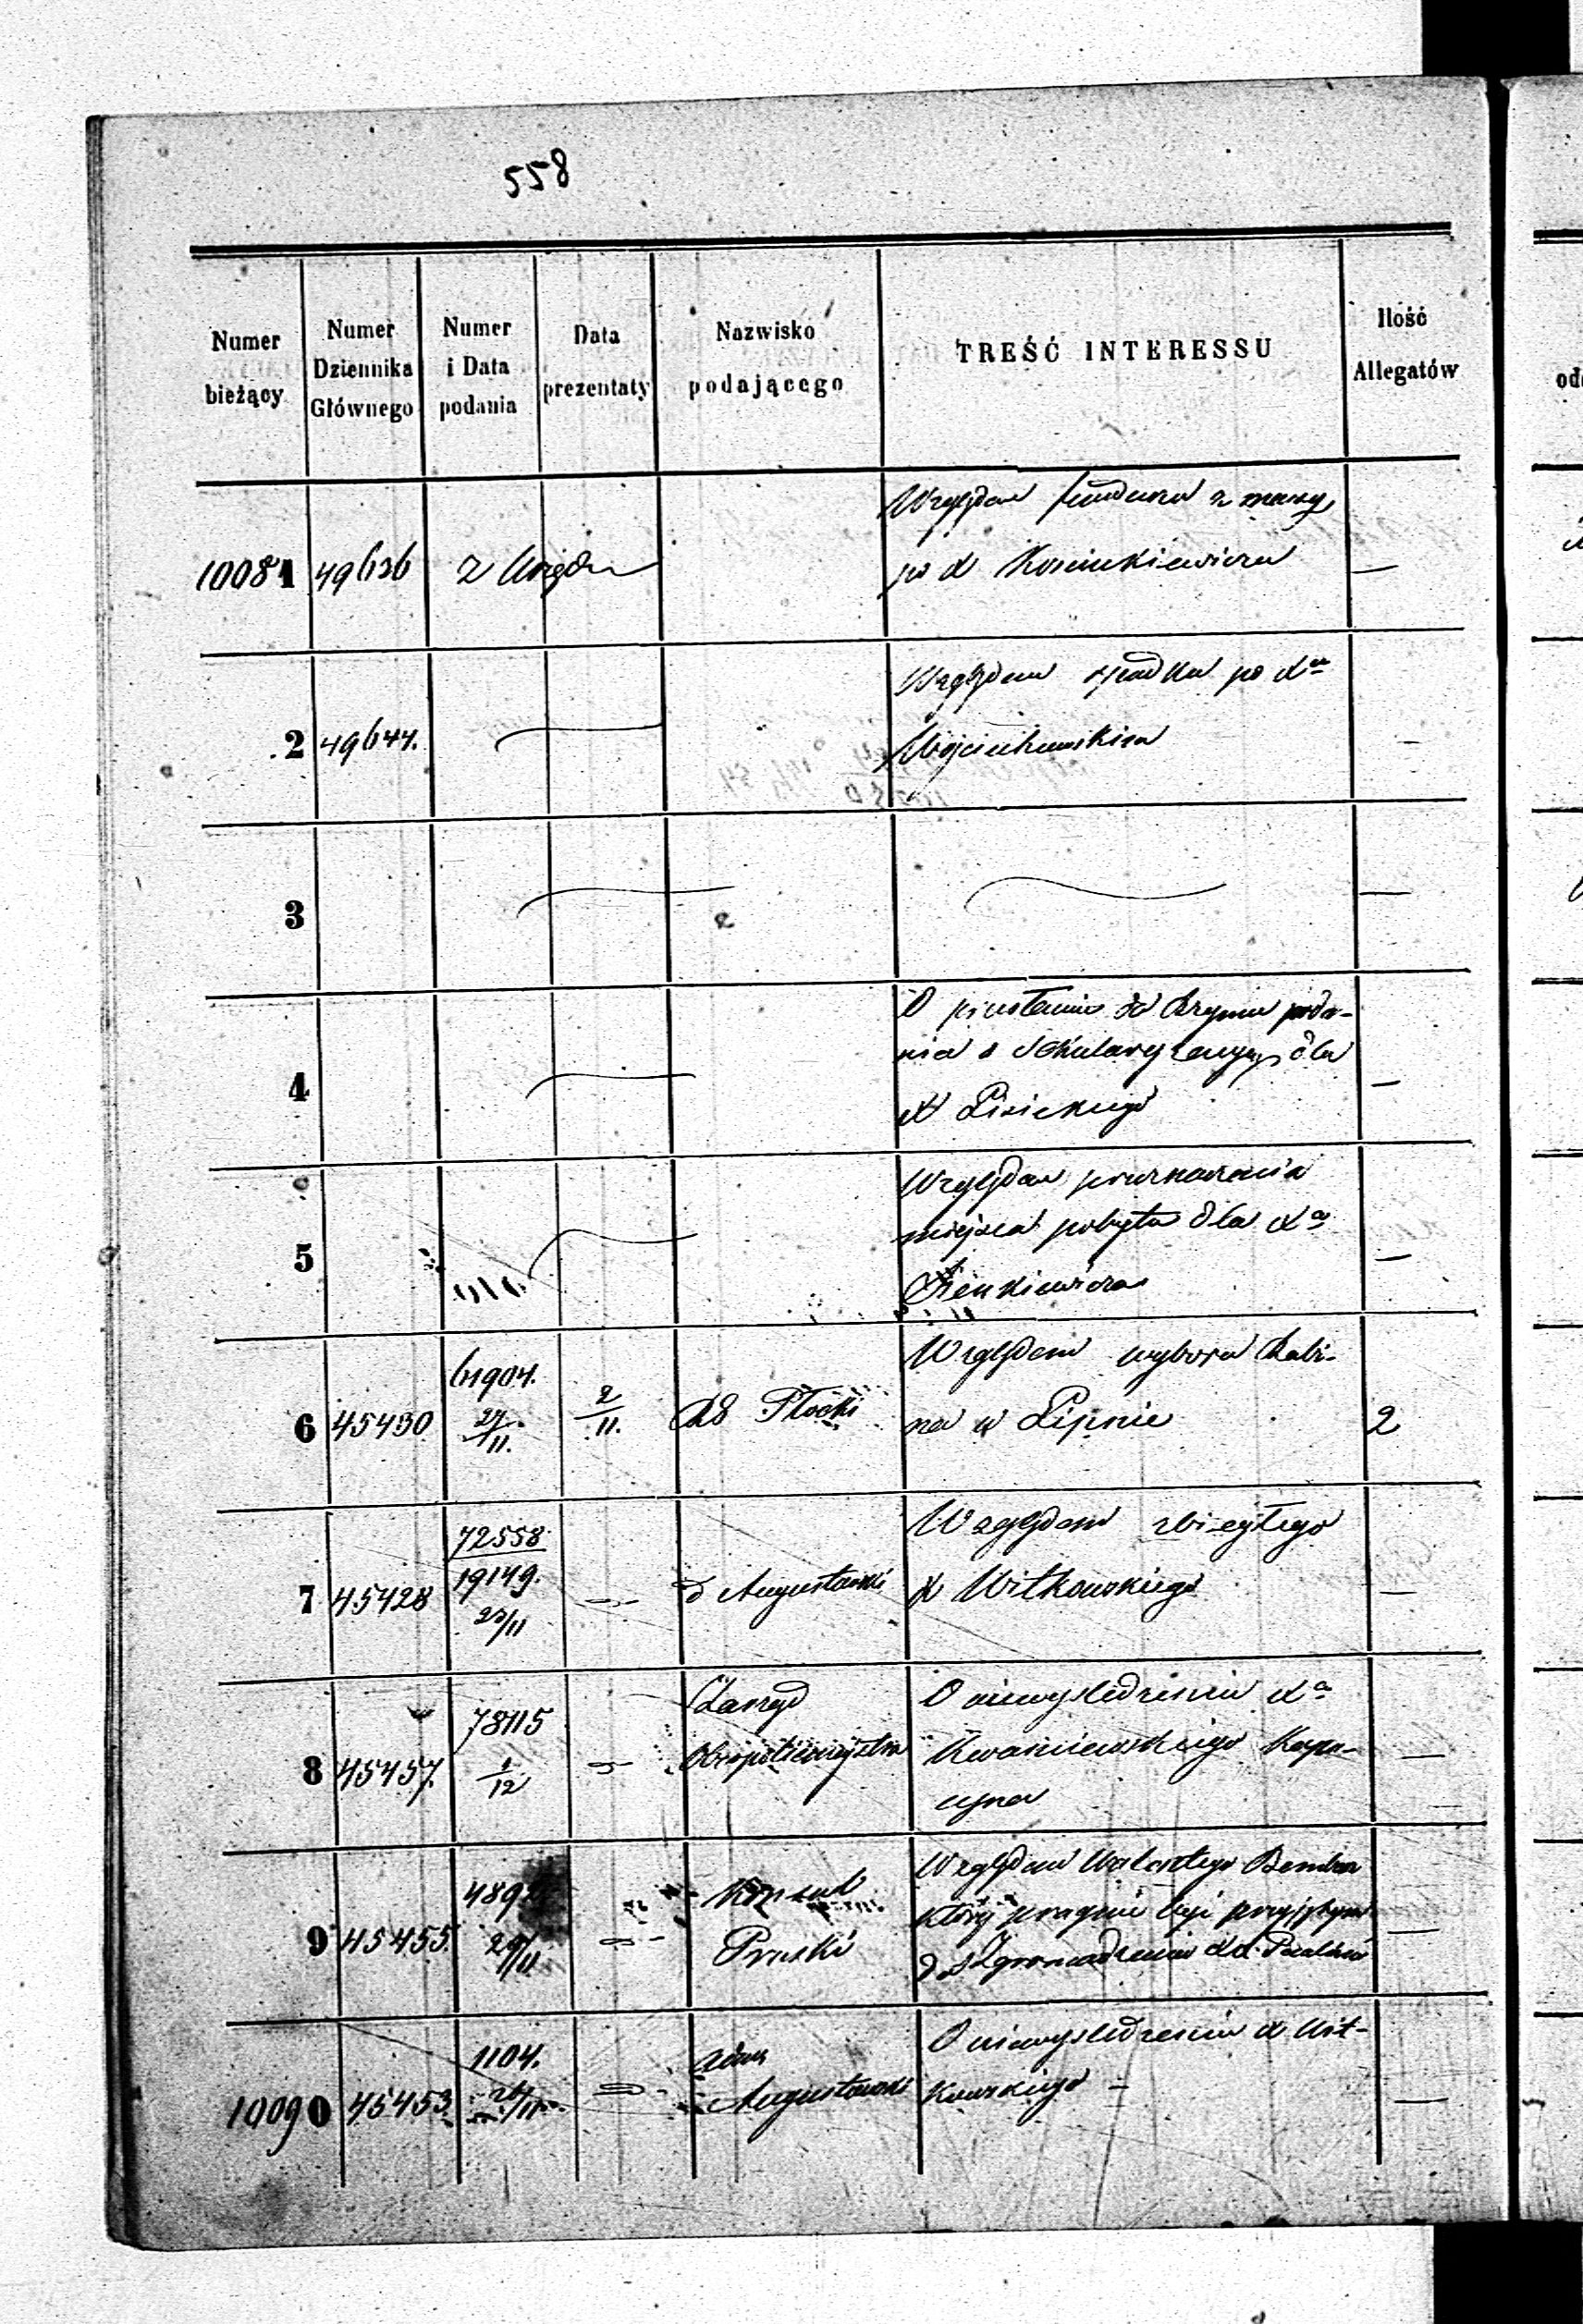 558
Numer bieżący
Numer Dziennika Głównego
Numer i Data podania
Data prezentaty
Nazwisko podającego
TREŚĆ INTERESSU
Ilość Allegatów
10081 49626 z Urzędu
Względem funduszu z massy
po X —
2 49644.
Względem spadku po Xu
Wojciechowskim
—
3
—
4
O przesłaniu do Rzymu poda-
nia o sekularyzacyą dla
X Lisieckiego
—
5
Względem przeznaczenia
miejsca pobytu dla Xa
—
6 45430 61904. 27/11. 2/11. Płocki
Względem wyboru Rabi-
na w Lipnie
2
7 45428 72558 19149. 23/11 Augustowski
Względem zbiegłego
X Witkowskiego
—
8 45457. 78115 1/12
Zarząd
O niewyśledzeniu Xa
Kwaśniewskiego Kapu-
cyna
—
9 45455. 29/11
Konsul
Pruski
Względem Walentego
który pragnie być przyjętym
do Zgromadzenia XX Paulinów
—
10090 45453 1104. 26/11
Augustowski
O niewyśledzeniu X Wit-
kowskiego —
—